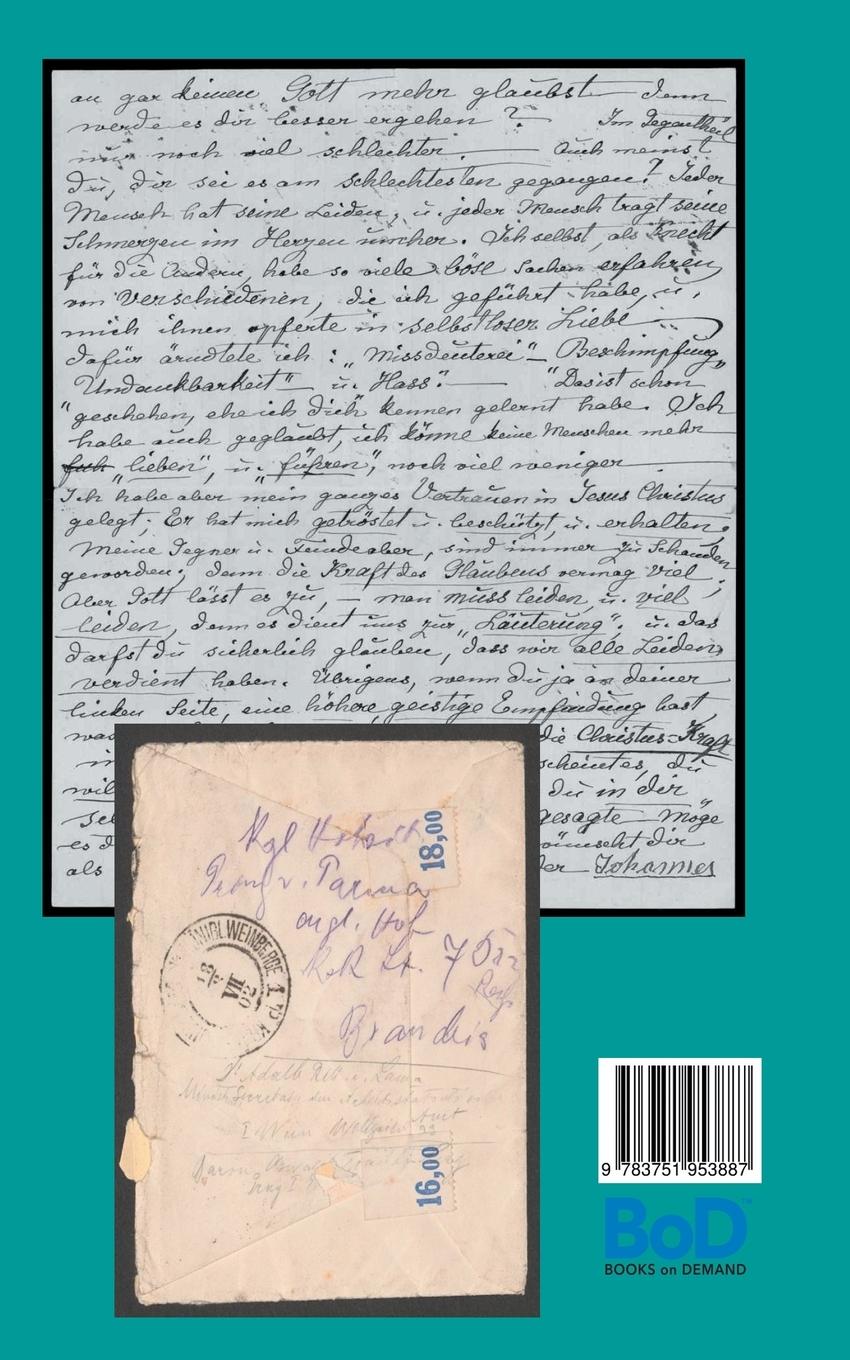 an gar keinen Gott mehr glaubst — denn
werde es dir besser ergehen? — Im Gegentheil
nur noch viel schlechter. — Auch meinst
du, dir sei es am schlechtesten gegangen? Jeder
Mensch hat seine Leiden, u. jeder Mensch tragt seine
Schmerzen im Herzen umher. Ich selbst, als Knecht
für die Andern, habe so viele böse Sachen erfahren
von Verschiedenen, die ich geführt habe, u.
mich ihnen opferte in selbstloser Liebe
dafür ärndtete ich: „Missdeuterei" — Beschimpfung„
Undankbarkeit" — u. Hass". — "Das ist schon
"geschehen, ehe ich dich" kennen gelernt habe. Ich
habe auch geglaubt, ich könne keine Menschen mehr
"lieben", u. „führen", noch viel weniger
Ich habe aber mein ganzes Vertrauen in Jesus Christus
gelegt; Er hat mich getröstet u. beschützt, u. erhalten,
Meine Gegner u. Feinde aber, sind immer zu Schanden
geworden; denn die Kraft des Glaubens vermag viel;
Aber Gott lässt es zu, — man muss leiden, u. viel
leiden, denn es dient uns zur „Läuterung"; u. das
darfst du sicherlich glauben, dass wir alle Leiden,
verdient haben. Übrigens, wenn du ja an deiner
linken Seite, eine höhere, geistige Empfindung hast,
die Christus-Kraft
scheint es, du
du in dir
gesagte — Möge
es d wünscht dir
als der Johannes
18,00
v. Parma
Hof
7
Brandeis
KÖNIGL. WEINBERGE 1
18
VII
02
Adalb
I Wien
Baron
Prag I
16,00
9 783751 953887
BoD™
BOOKS on DEMAND